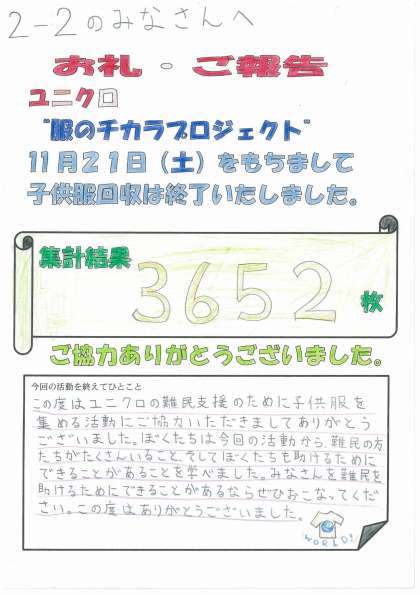 2-2のみなさんへ
お礼・ご報告
ユニクロ
"服のチカラプロジェクト"
11月21日(土)をもちまして
子供服回収は終了いたしました。
集計結果
3652枚
ご協力ありがとうございました。
今回の活動を終えてひとこと
この度はユニクロの難民支援のために子供服を
集める活動にご協力いただきましてありがとう
ございました。ぼくたちは今回の活動から、難民の方
たちがたくさんいること、そしてぼくたちも助けるために
できることがあることを学べました。みなさんも難民を
助けるためにできることがあるならぜひおこなってくだ
さい。この度はありがとうございました。
WORLD!